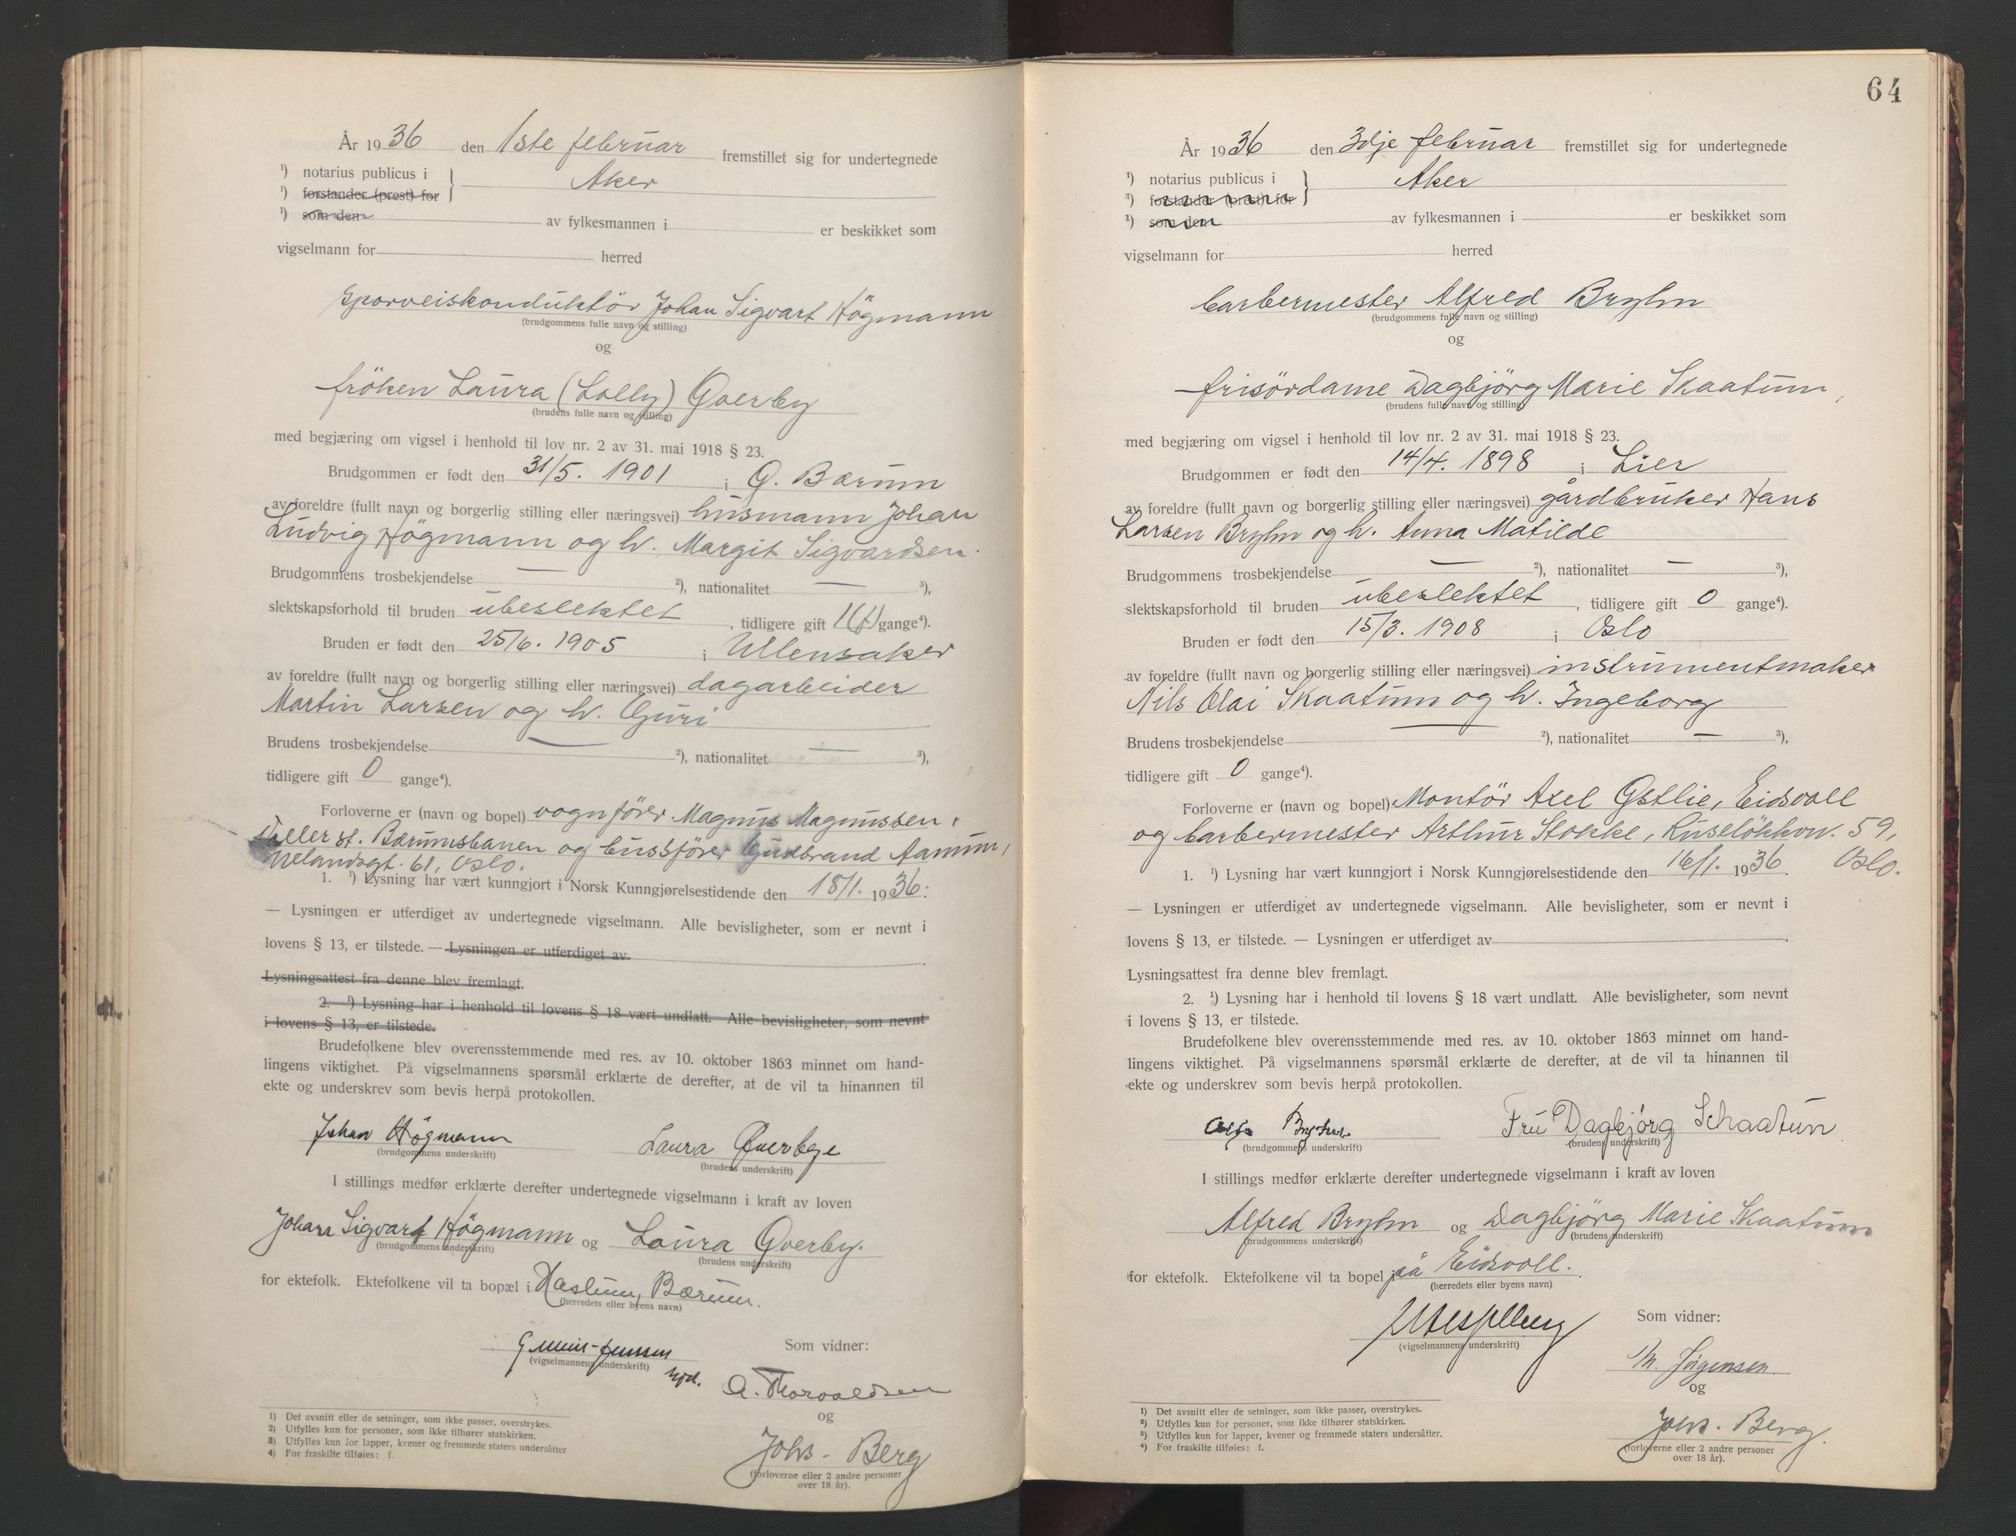 År 1936 den 1ste februar fremstillet sig for undertegnede
¹) notarius publicus i } Aker
¹) forstander (prest) for
¹) som den av fylkesmannen i er beskikket som
vigselmann for herred
Sporveiskonduktör Johan Sigvart Högmann
(brudgommens fulle navn og stilling)
og
fröken Laura (Lolly) Qverby
(brudens fulle navn og stilling)
med begjæring om vigsel i henhold til lov nr. 2 av 31. mai 1918 § 23.
Brudgommen er født den 31/5. 1901 i Ø. Bærum
av foreldre (fullt navn og borgerlig stilling eller næringsvei) husmann Johan
Ludvig Högmann og h. Margit Sigvardsen.
Brudgommens trosbekjendelse — ²), nationalitet — ³),
slektskapsforhold til bruden ubeslektet, tidligere gift 1(f) gange⁴).
Bruden er født den 25/6. 1905 i Ullensaker
av foreldre (fullt navn og borgerlig stilling eller næringsvei) dagarbeider
Martin Larsen og h. Guri
Brudens trosbekjendelse — ²), nationalitet — ³),
tidligere gift 0 gange⁴).
Forloverne er (navn og bopel) vognfører Magnus Magnussen,
Tillerst. Bærumsbanen og bussfører Gudbrand Aamum,
Uelandsgt. 61, Oslo.
1. ¹) Lysning har vært kunngjort i Norsk Kunngjørelsestidende den 18/1. 1936.
— Lysningen er utferdiget av undertegnede vigselmann. Alle bevisligheter, som er nevnt i
lovens § 13, er tilstede. — Lysningen er utferdiget av
Lysningsattest fra denne blev fremlagt.
2. ¹) Lysning har i henhold til lovens § 18 vært undlatt. Alle bevisligheter, som nevnt
i lovens § 13, er tilstede.
Brudefolkene blev overensstemmende med res. av 10. oktober 1863 minnet om hand-
lingens viktighet. På vigselmannens spørsmål erklærte de derefter, at de vil ta hinannen til
ekte og underskrev som bevis herpå protokollen.
Johan Högmann Laura Qverbye
(brudgommens underskrift) (brudens underskrift)
I stillings medfør erklærte derefter undertegnede vigselmann i kraft av loven
Johan Sigvart Högmann og Laura Qverby.
(brudgommens underskrift) (brudens underskrift)
for ektefolk. Ektefolkene vil ta bopæl i Haslum, Bærum.
(herredets eller byens navn)
Som vidner:
(vigselmannens underskrift)
A. Thorvaldsen
og
Johs. Berg
(forloverne eller 2 andre personer
over 18 år).
1) Det avsnitt eller de setninger, som ikke passer, overstrykes.
2) Utfylles kun for personer, som ikke tilhører statskirken.
3) Utfylles kun for lapper, kvener og fremmede staters undersåtter
4) For fraskilte tilføies: f.
64
År 1936 den 3dje februar fremstillet sig for undertegnede
¹) notarius publicus i } Aker
¹) forstander (prest) for
¹) som den av fylkesmannen i er beskikket som
vigselmann for herred
barbermester Alfred Bryhn
(brudgommens fulle navn og stilling)
og
frisördame Dagbjörg Marie Skaatum,
(brudens fulle navn og stilling)
med begjæring om vigsel i henhold til lov nr. 2 av 31. mai 1918 § 23.
Brudgommen er født den 14/4. 1898 i Lier
av foreldre (fullt navn og borgerlig stilling eller næringsvei) gårdbruker Hans
Larsen Bryhn og h. Anna Matilde
Brudgommens trosbekjendelse — ²), nationalitet — ³),
slektskapsforhold til bruden ubeslektet, tidligere gift 0 gange⁴).
Bruden er født den 15/3. 1908 i Oslo
av foreldre (fullt navn og borgerlig stilling eller næringsvei) instrumentmaker
Nils Olai Skaatum og h. Ingeborg
Brudens trosbekjendelse — ²), nationalitet — ³),
tidligere gift 0 gange⁴).
Forloverne er (navn og bopel) Montör Axel Østlie, Eidsvoll
og barbermester Arthur Stokke, Ruseløkkv. 59,
Oslo.
1. ¹) Lysning har vært kunngjort i Norsk Kunngjørelsestidende den 16/1. 1936
— Lysningen er utferdiget av undertegnede vigselmann. Alle bevisligheter, som er nevnt i
lovens § 13, er tilstede. — Lysningen er utferdiget av
Lysningsattest fra denne blev fremlagt.
2. ¹) Lysning har i henhold til lovens § 18 vært undlatt. Alle bevisligheter, som nevnt
i lovens § 13, er tilstede.
Brudefolkene blev overensstemmende med res. av 10. oktober 1863 minnet om hand-
lingens viktighet. På vigselmannens spørsmål erklærte de derefter, at de vil ta hinannen til
ekte og underskrev som bevis herpå protokollen.
Fru Dagbjørg Schaatun
(brudgommens underskrift) (brudens underskrift)
I stillings medfør erklærte derefter undertegnede vigselmann i kraft av loven
Alfred Bryhn og Dagbjörg Marie Skaatum
(brudgommens underskrift) (brudens underskrift)
for ektefolk. Ektefolkene vil ta bopel på Eidsvoll.
(herredets eller byens navn)
Som vidner:
(vigselmannens underskrift)
M. Jørgensen
og
Johs. Berg.
(forloverne eller 2 andre personer
over 18 år).
1) Det avsnitt eller de setninger, som ikke passer, overstrykes.
2) Utfylles kun for personer, som ikke tilhører statskirken.
3) Utfylles kun for lapper, kvener og fremmede staters undersåtter.
4) For fraskilte tilføies: f.